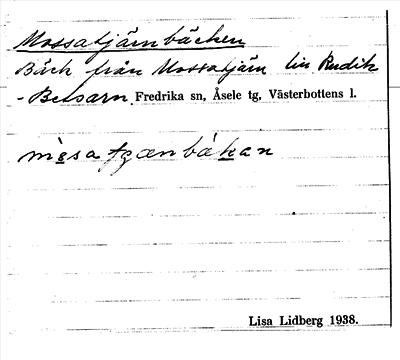 Mossatjärnbäcken
Bäck från Mossatjärn till Rudik
- Betsarn. Fredrika sn, Åsele tg, Västerbottens l.
Lisa Lidberg 1938.